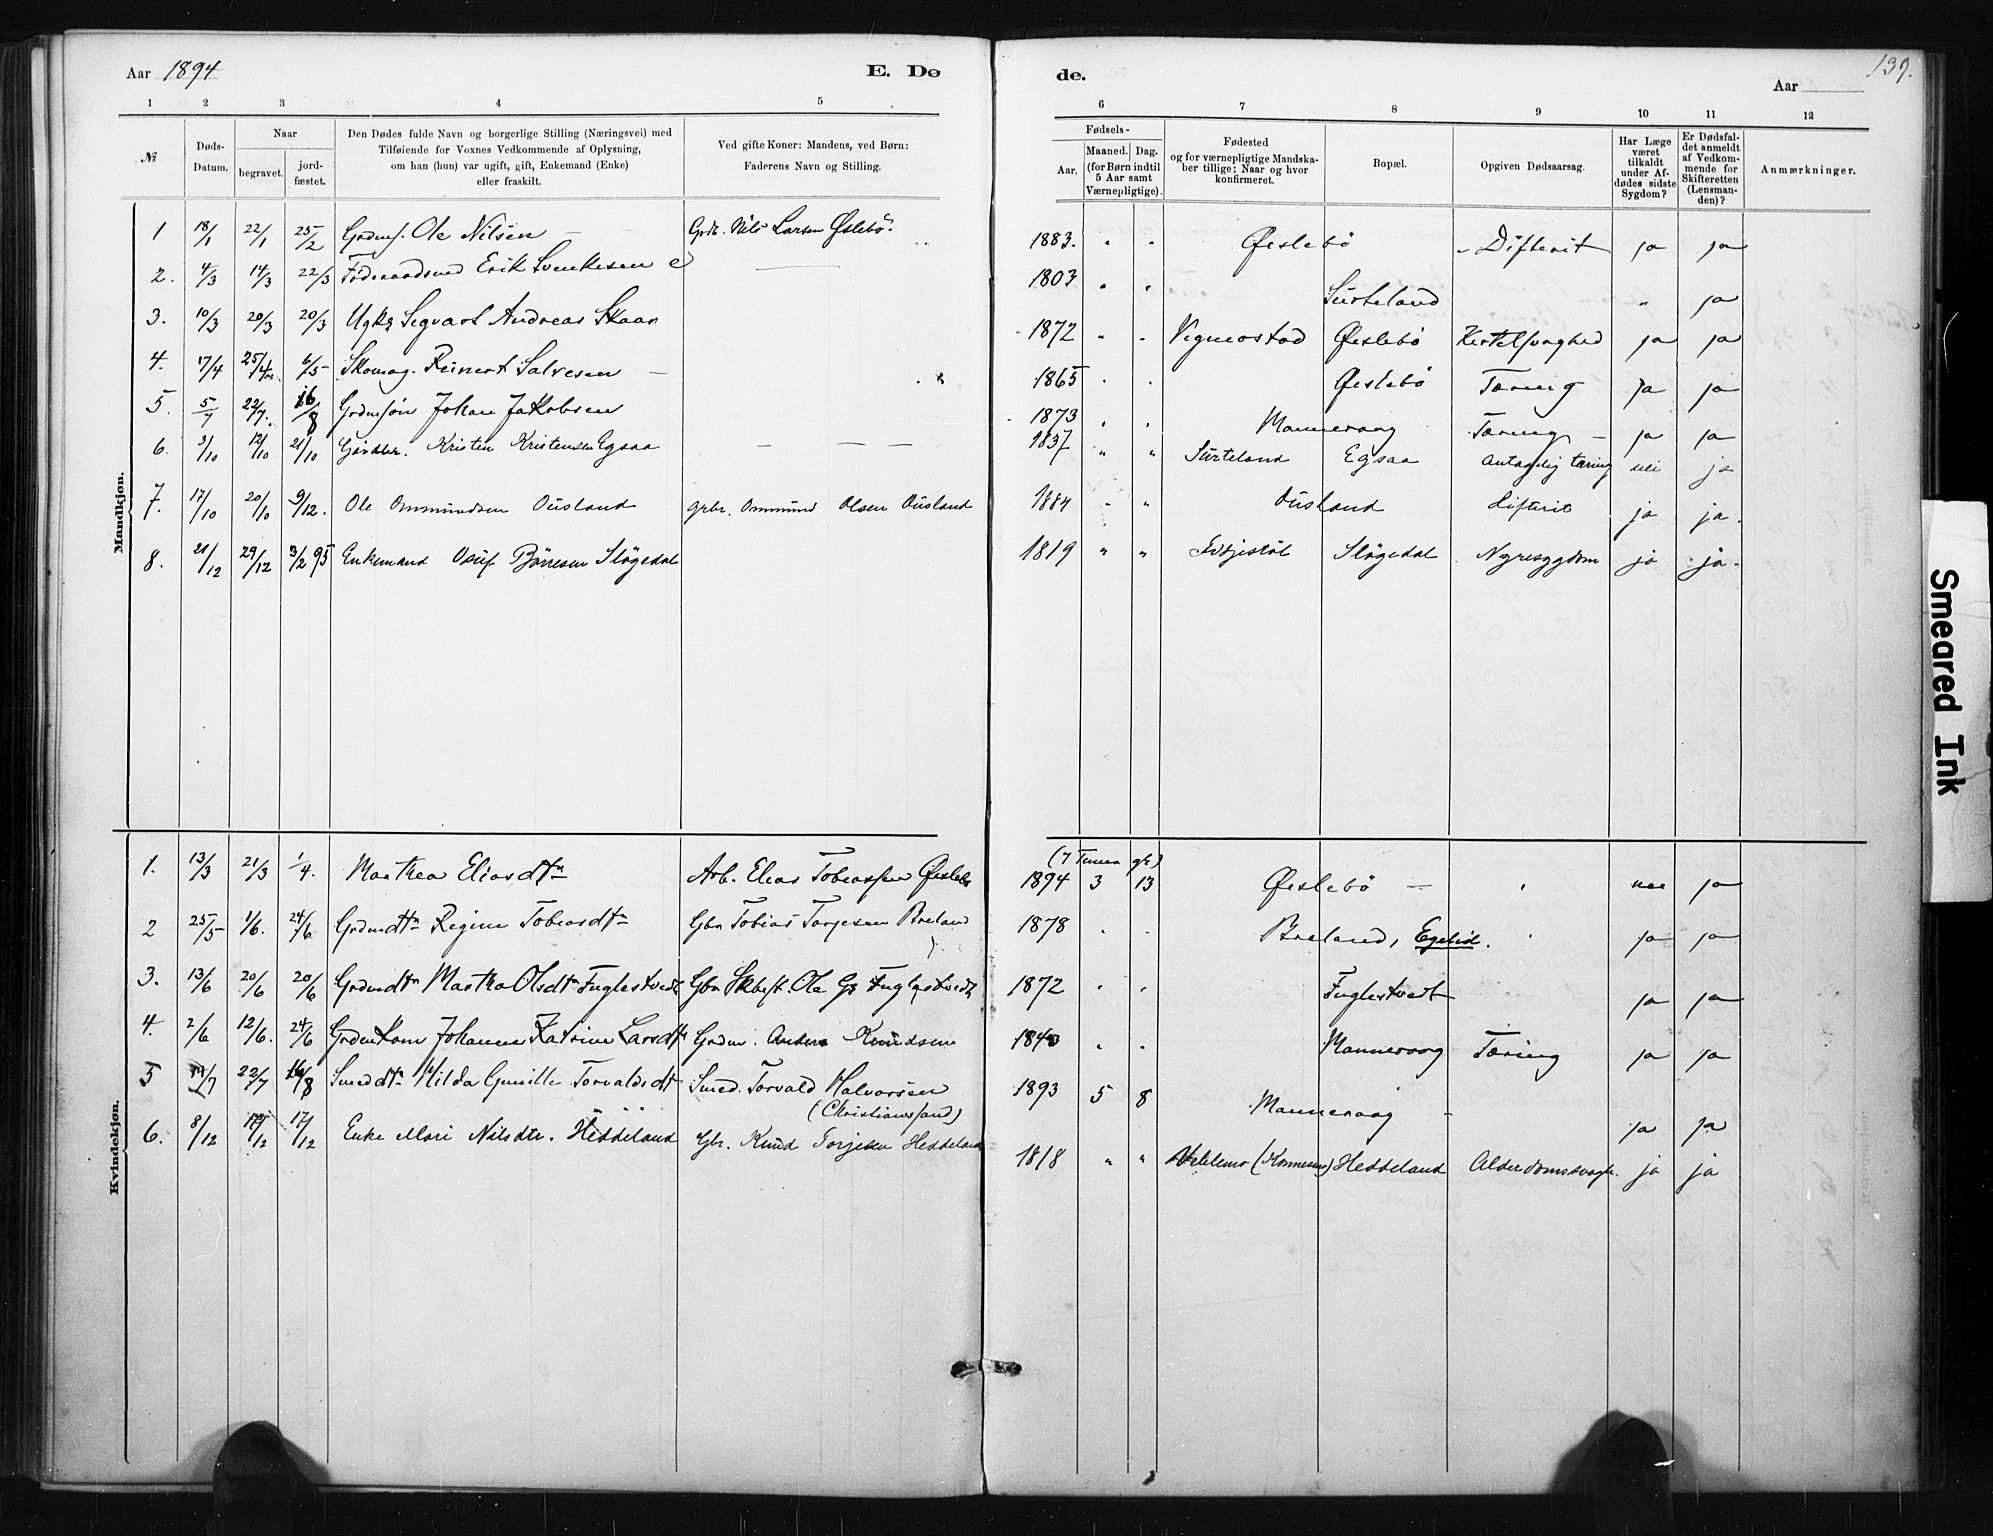 Aar 1894 E. Dø
1 2 3 4 5
№ Døds-Datum. Naar begravet. jord-fæstet. Den Dødes fulde Navn og borgerlige Stilling (Næringsvei) med Tilføiende for Voxnes Vedkommende af Oplysning, om han (hun) var ugift, gift, Enkemand (Enke) eller fraskilt. Ved gifte Koner: Mandens, ved Børn: Faderens Navn og Stilling.
Mandkjøn.
1 18/1 22/1 25/2 Ole Nilsen — Nils Larsen Øslebö
2. 4/3 14/3 22/3 Erik —
3. 10/3 20/3 20/3 Ugkr Segvart Andreas Skaar
4. 17/4 25/4 6/5 Skomag. Reinert Salvesen —
5. 5/7 22/7 16/8 Johan Jakobsen
6. 3/10 12/10 21/10 Gårdbr. Kristen Kristensen Egsaa — — —
7. 17/10 20/10 9/12. Ole Ommundsen Ousland grbr. Ommund Olsen Ousland
8. 21/12 29/12 3/2 95 Enkemand Osuf Bönesen Slögedal
Kvindekjøn.
1. 13/3 21/3 1/4. Marthea Eliasdtr Arb. Elias Tobiassen Øislebö
2 25/5 1/6. 24/6 Regine Tobiasdtr Gbr Tobias Torjesen Breland
3. 13/6 20/6 20/6 Martha Olsdtr Fuglestvedt Gbr Ole Gs Fuglestvedt
4. 2/6 12/6. 24/6 Johanne Katrine Larsdtr Anders Knudsen
5 22/7 16/8 Smeddtr Hilda Gunille Torvaldsdtr Smed. Torvald Halvorsen
(Christianssand)
6. 8/12 17/12 17/12 Enke Mari Nilsdtr. Heddeland Gbr. Knud Torjesen Heddeland
de. Aar 139.
6 7 8 9 10 11 12
Fødsels- Aar. Maaned. Dag. (for Børn indtil 5 Aar samt Værnepligtige). Fødested og for værnepligtige Mandskaber tillige: Naar og hvor konfirmeret. Bopæl. Opgiven Dødsaarsag. Har Læge været tilkaldt under Afdødes sidste Sygdom? Er Dødsfaldet anmeldt af Vedkommende for Skifteretten (Lensmanden)? Anmærkninger.
1883. " " Øislebö Difterit ja ja
1803 " " Surteland " ja
1872 " " Vigmostad Øislebö Kertelsvaghed ja ja
1865 " " Øislebö Tæring ja ja
1873 " " Manneraag Tæring — ja ja
1837 " " Surteland Egsaa Antagelig tæring nei ja
1884 " " Ousland Difterit ja ja.
1819 " " Slögedal Nyresygdom ja ja.
(7 Timer gl)
1894 3 13 Øislebö — " nei ja
1878 " " Breland, Egelid. " ja ja
1872 " " Fuglestvedt ja ja
" " Manneraag Tæring ja ja
1893 5 8 Manneraag — ja ja
1818 " " Heddeland Alderdomssvagh. ja ja
Smeared Ink